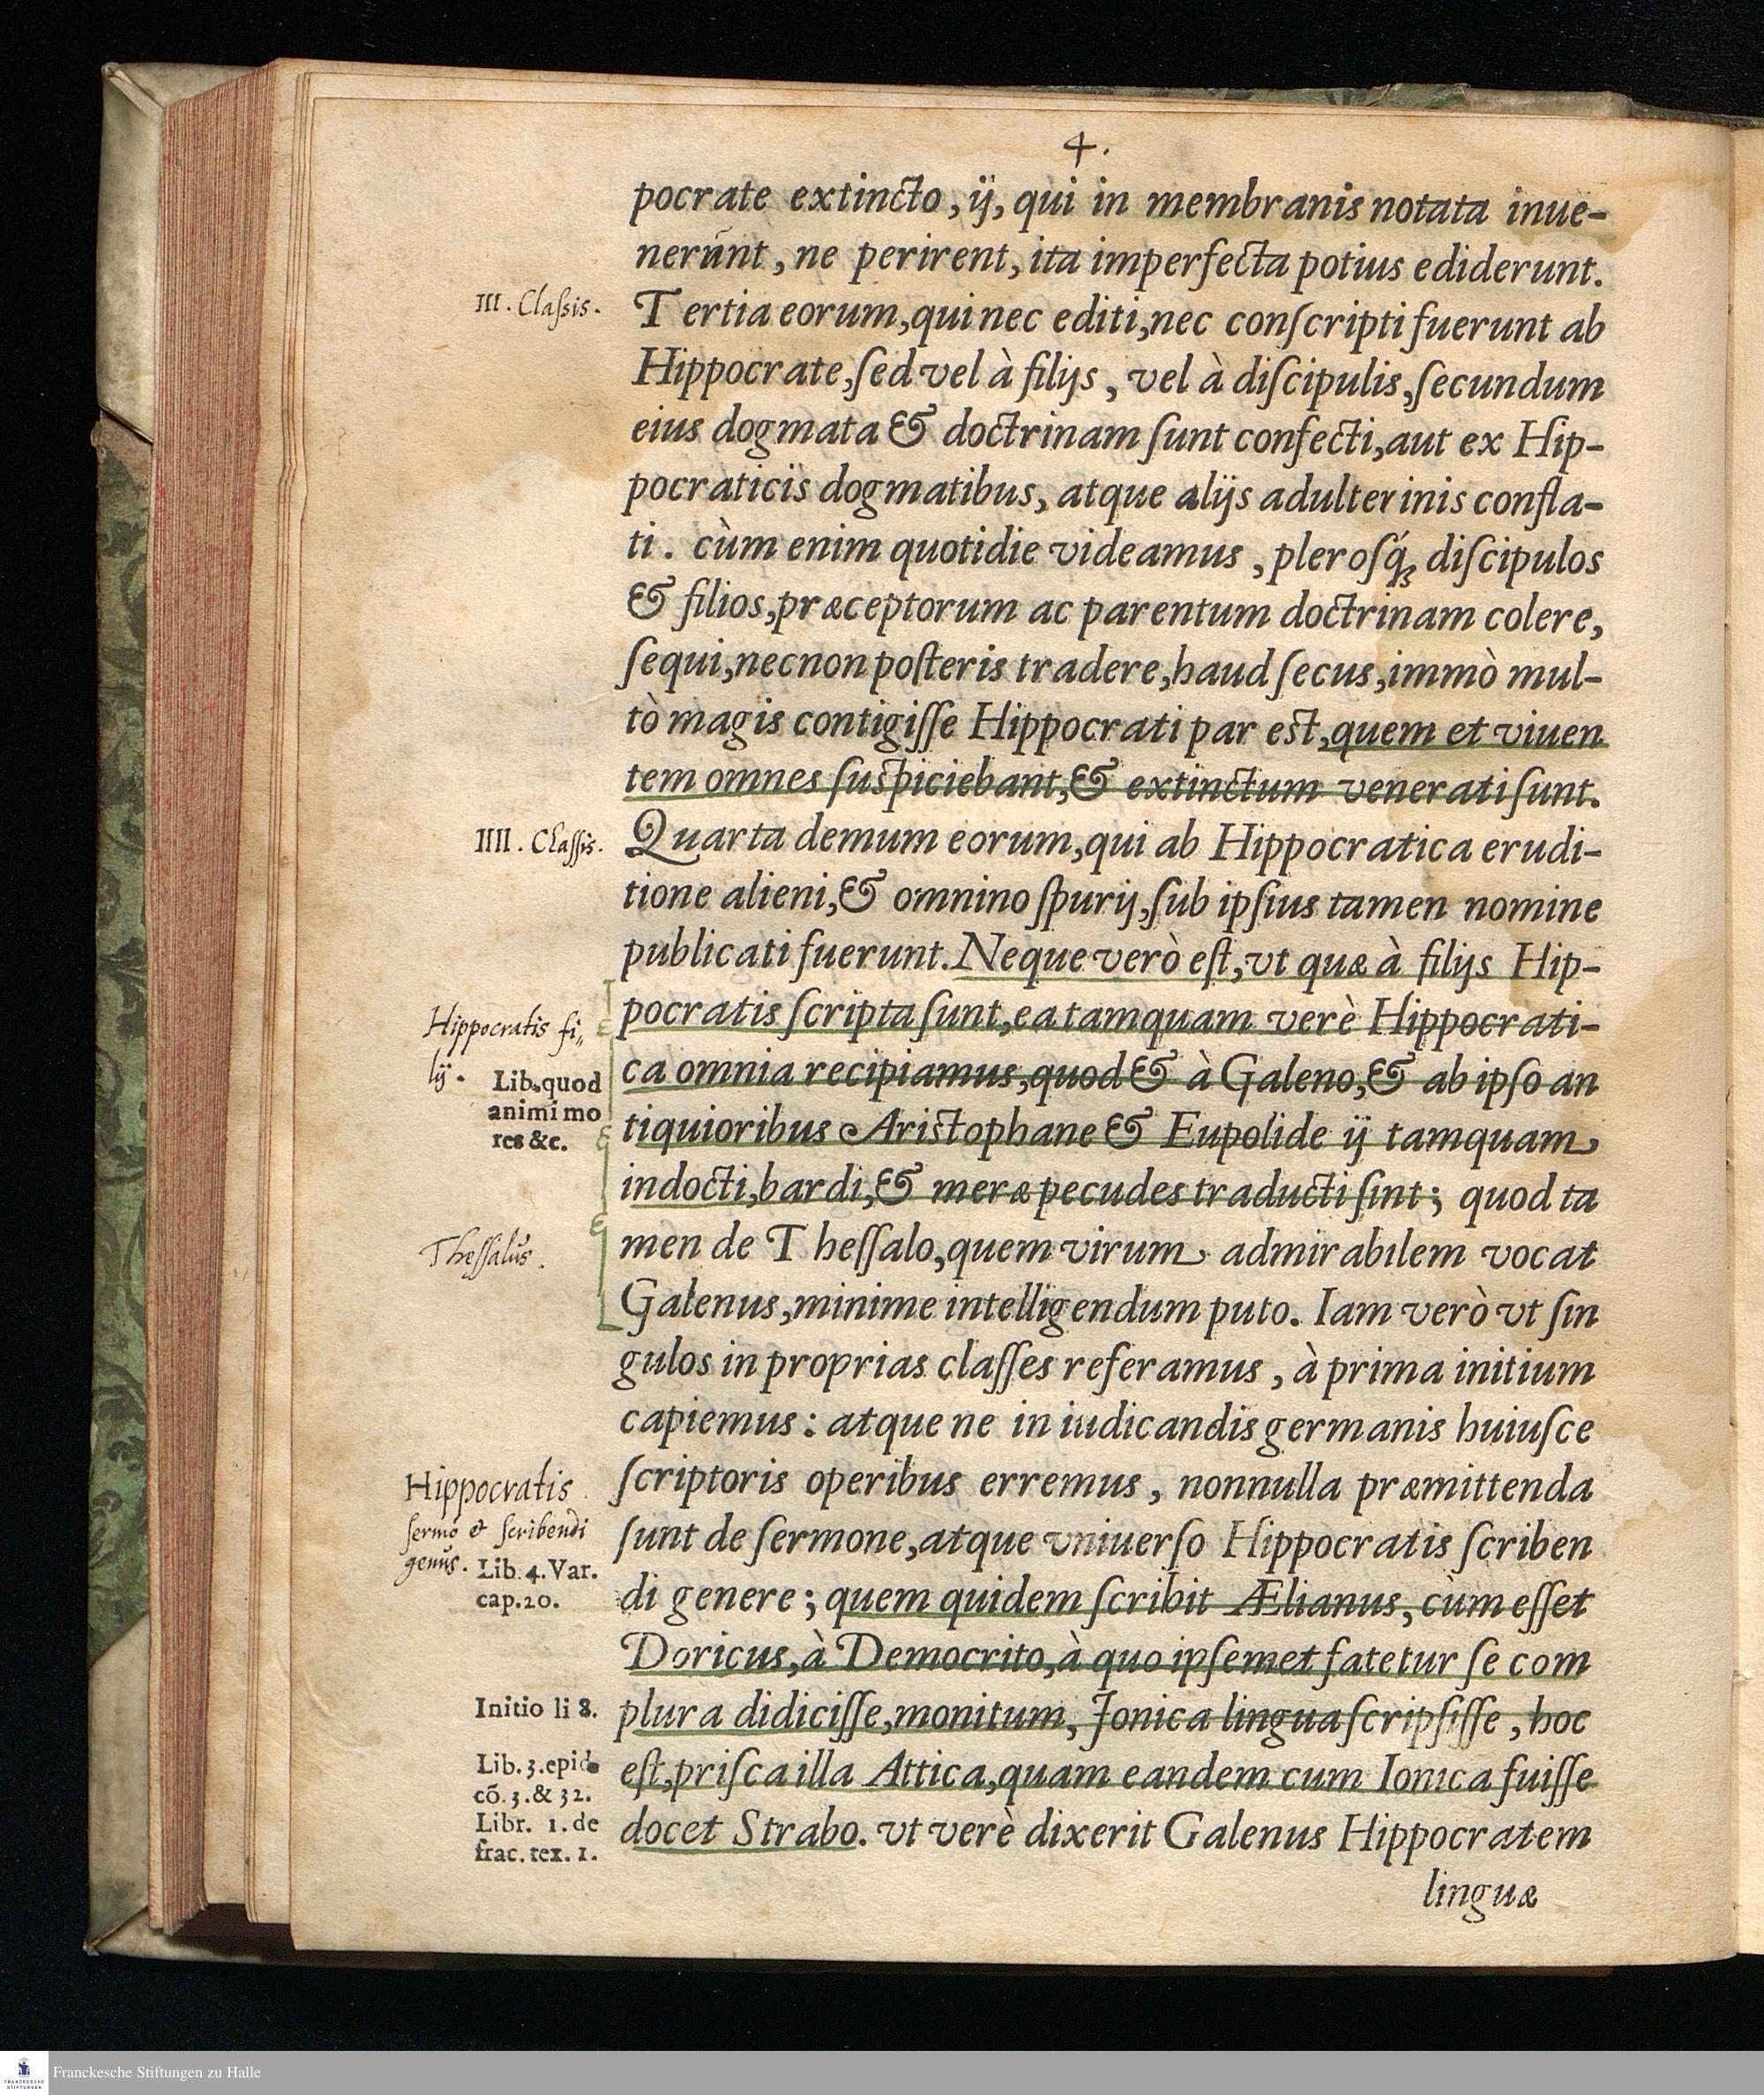 4.
pocrate extincto, ij, qui in membranis notata inue-
nerunt, ne perirent, ita imperfecta potius ediderunt.
III. Claſsis.
Tertia eorum, qui nec editi, nec conſcripti fuerunt ab
Hippocrate, ſed vel à filijs, vel à diſcipulis, ſecundum
eius dogmata & doctrinam ſunt confecti, aut ex Hip-
pocraticis dogmatibus, atque alijs adulterinis confla-
ti. cùm enim quotidie videamus, pleroſq́; diſcipulos
& filios, præceptorum ac parentum doctrinam colere,
ſequi, necnon poſteris tradere, haud ſecus, immò mul-
tò magis contigiſſe Hippocrati par est, quem et viuen
tem omnes ſuspiciebant, & extinctum venerati ſunt.
IIII. Claſſis.
Quarta demum eorum, qui ab Hippocratica erudi-
tione alieni, & omnino ſpurij, ſub ipſius tamen nomine
publicati fuerunt. Neque verò eſt, vt quæ à filijs Hip-
pocratis ſcripta ſunt, ea tamquam verè Hippocrati-
Hippocratis fi„
lij.
ca omnia recipiamus, quod & à Galeno, & ab ipſo an
Lib. quod
animi mo
res &c.
tiquioribus Aristophane & Eupolide ij tamquam
indocti, bardi, & meræ pecudes traducti ſint; quod ta
men de Theſſalo, quem virum admirabilem vocat
Theſſalus.
Galenus, minime intelligendum puto. Iam verò vt ſin
gulos in proprias claſſes referamus, à prima initium
capiemus: atque ne in iudicandis germanis huiuſce
ſcriptoris operibus erremus, nonnulla præmittenda
Hippocratis
ſermo et ſcribendi
genus.
ſunt de ſermone, atque vniuerſo Hippocratis ſcriben
Lib. 4. Var.
cap. 20.
di genere; quem quidem ſcribit Ælianus, cùm eſſet
Doricus, à Democrito, à quo ipſemet fatetur ſe com
plura didiciſſe, monitum, Ionica lingua ſcripſiſſe, hoc
Initio li 8.
eſt, priſca illa Attica, quam eandem cum Ionica fuiſſe
Lib. 3. epid.
cō. 3. & 32.
Libr. 1. de
frac. tex. 1.
docet Strabo. vt verè dixerit Galenus Hippocratem
linguæ
FRANCKESCHE
STIFTUNGEN
Franckesche Stiftungen zu Halle